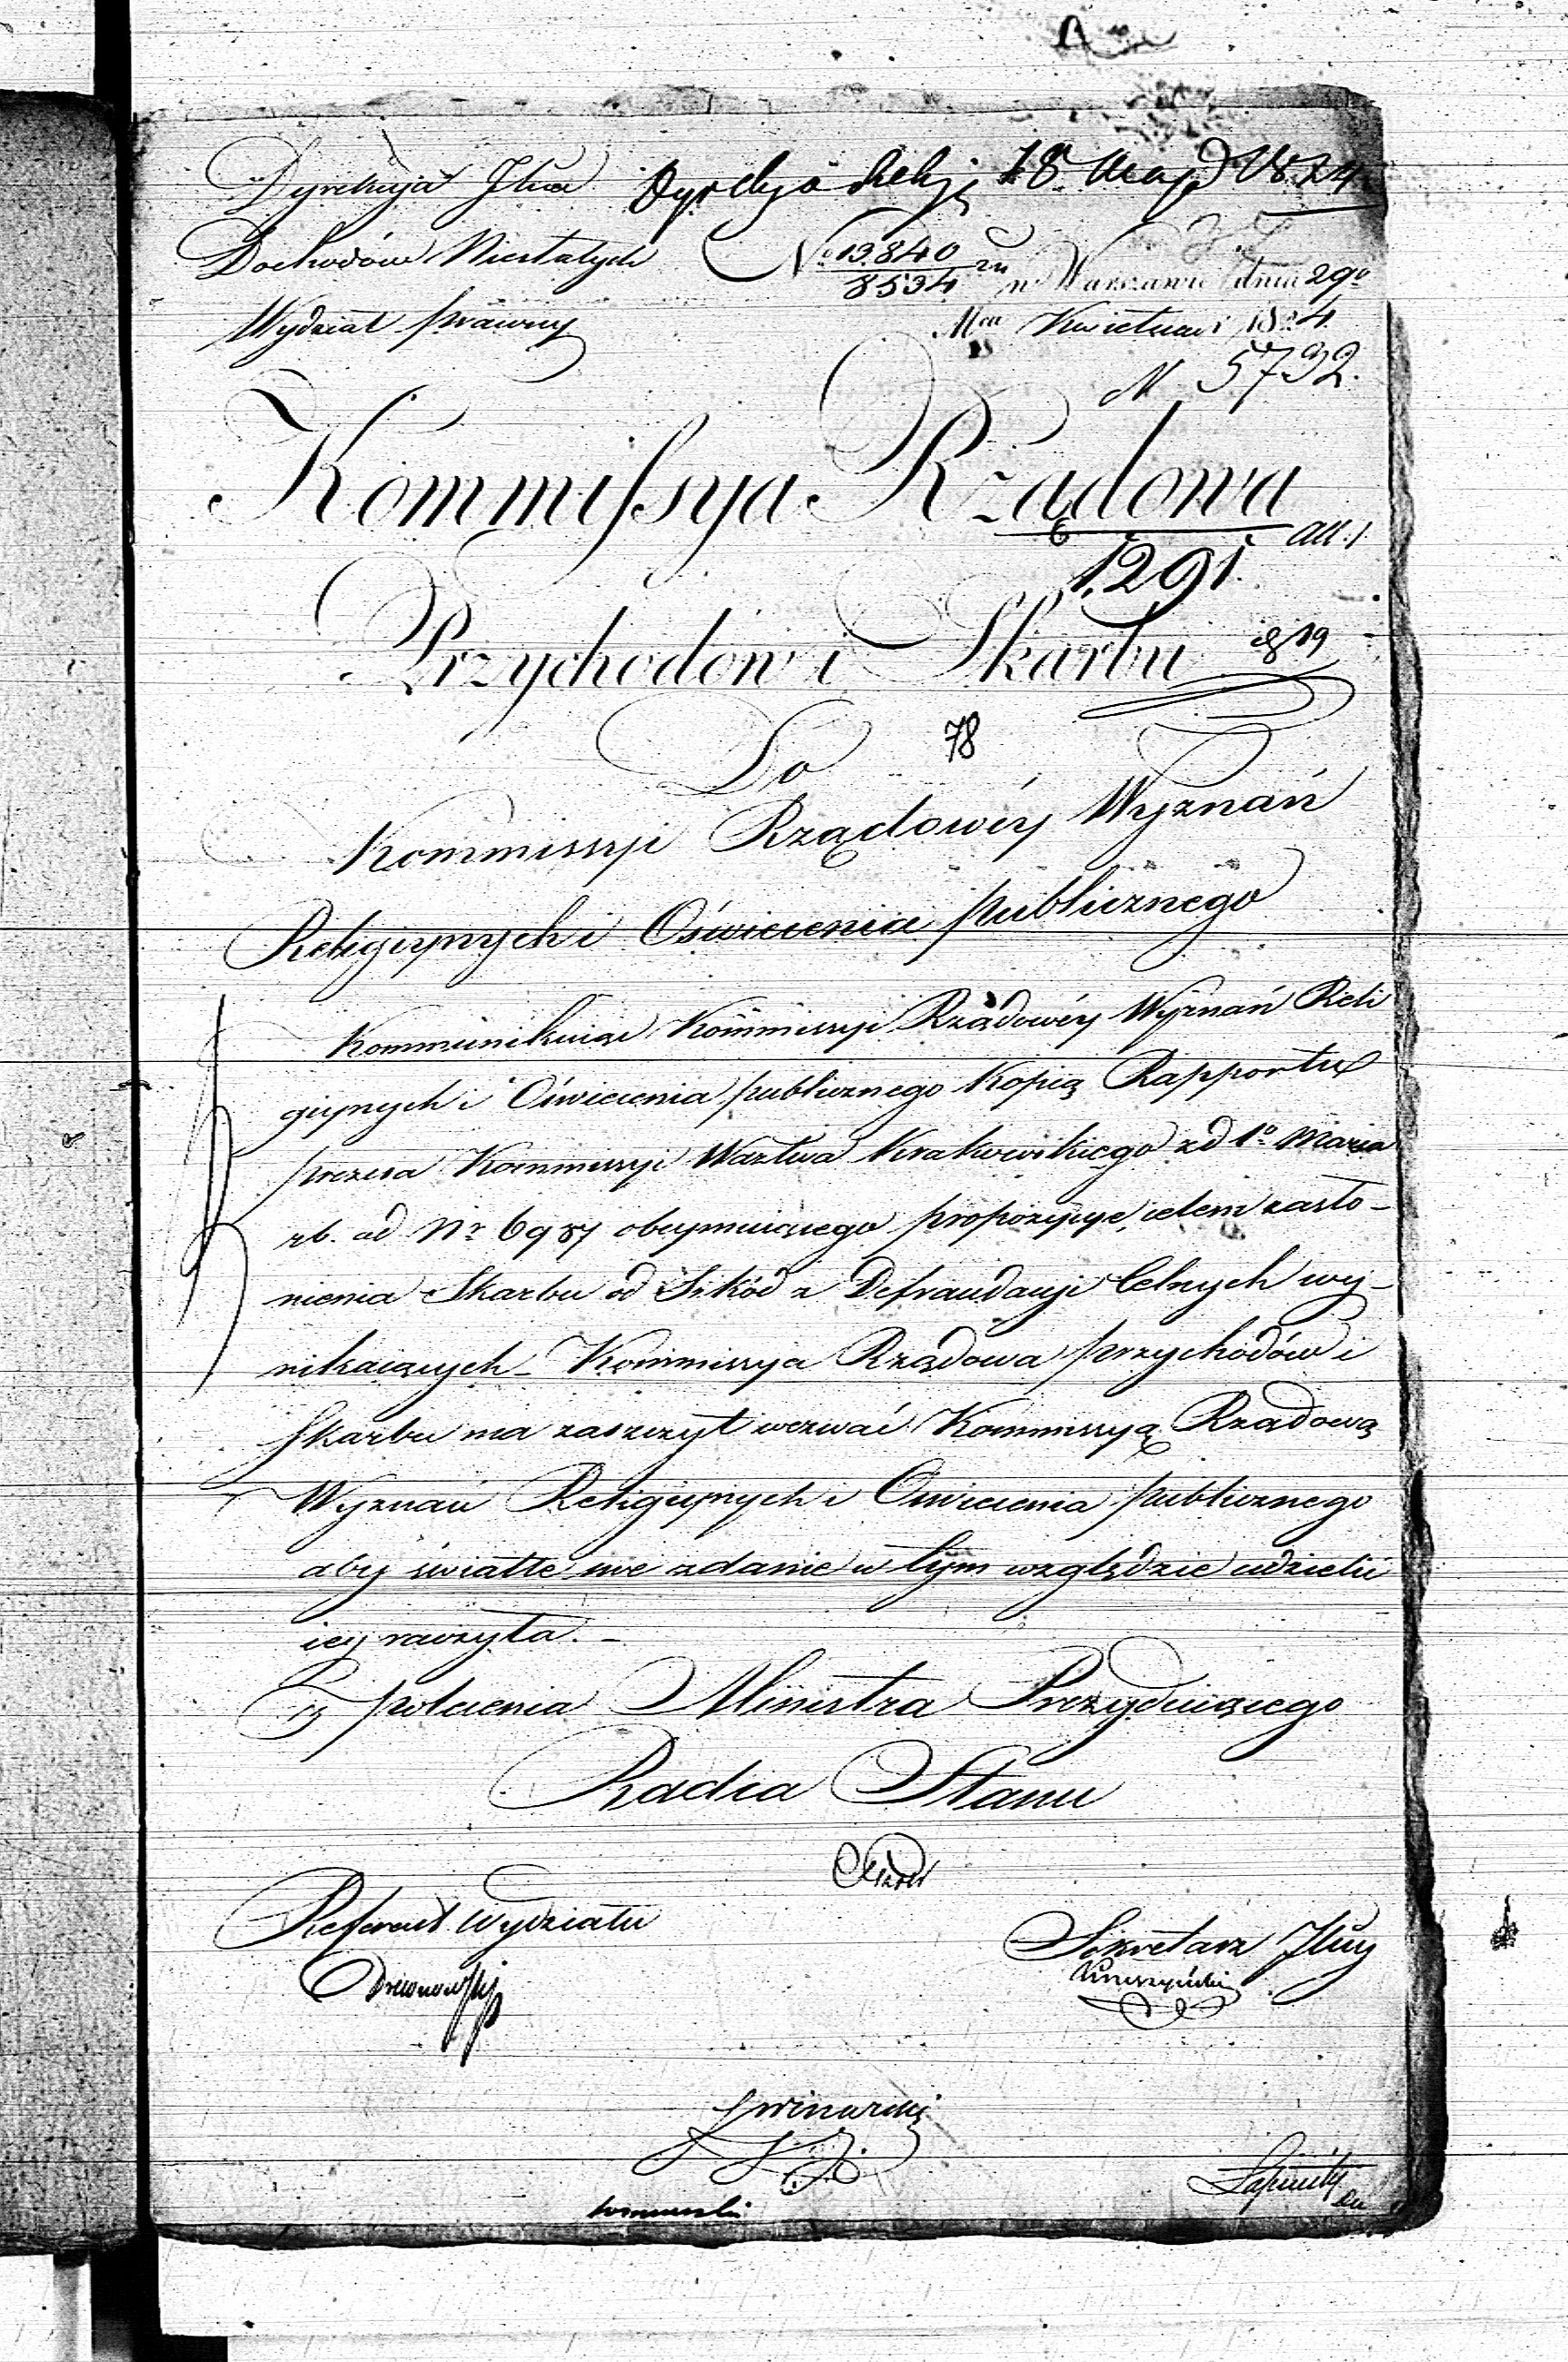 Dyrekcya Jlna 18 Maja 1824
Dochodów Niestałych No 13840 w Warszawie dnia 29o
8534
Wydział prawny Mca Kwietnia 1824
N 5732.
Kommissya Rządowa
all: 1.
1291
Przychodów i Skarbu
819
78
Do
Kommissyi Rządowéy Wyznań
Religiynych i Oświecenia publicznego
Kommunikuiąc Kommissyi Rządowéy Wyznań Reli
giynych i Oświecenia publicznego Kopią Rapportu
prezesa Kommissyi Wdztwa Krakowskiego zd 1o Marca
rb. ad Nr 6987 obeymuiącego propozycye, celem zasło-
nienia Skarbu od Szkód z Defraudacyi Celnych wy-
nikaiących - Kommissya Rządowa przychodów i
Skarbu ma zaszczyt wezwać Kommissyą Rządową
Wyznań Religiynych i Oświecenia publicznego
aby światłe swe zdanie w tym względzie udzielić
iey raczyła. -
Z polecenia Ministra Prezyduiącego
Radca Stanu
Referent Wydziału
Sekretarz Jlny
Drewnowski